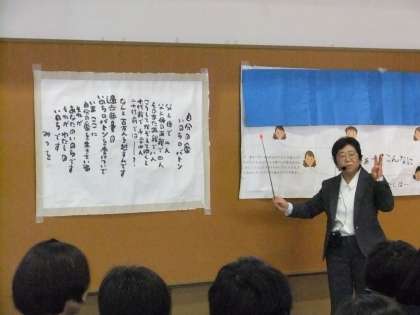 自分の番
いのちのバトン
父と母で二人
父と母の両親で四人
そのまた両親で八人
こうしてかぞえてゆくと
十代前で千二十四人
二十代前では―?
なんと百万人を越すんです
過去無量の
いのちのバトンを受けついで
いまここに
自分の番を生きている
それが
あなたのいのちです
それがわたしの
いのちです
みつを
こんなに